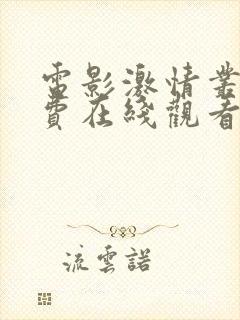 電影激情叢
費在綫觀看
流雲諾